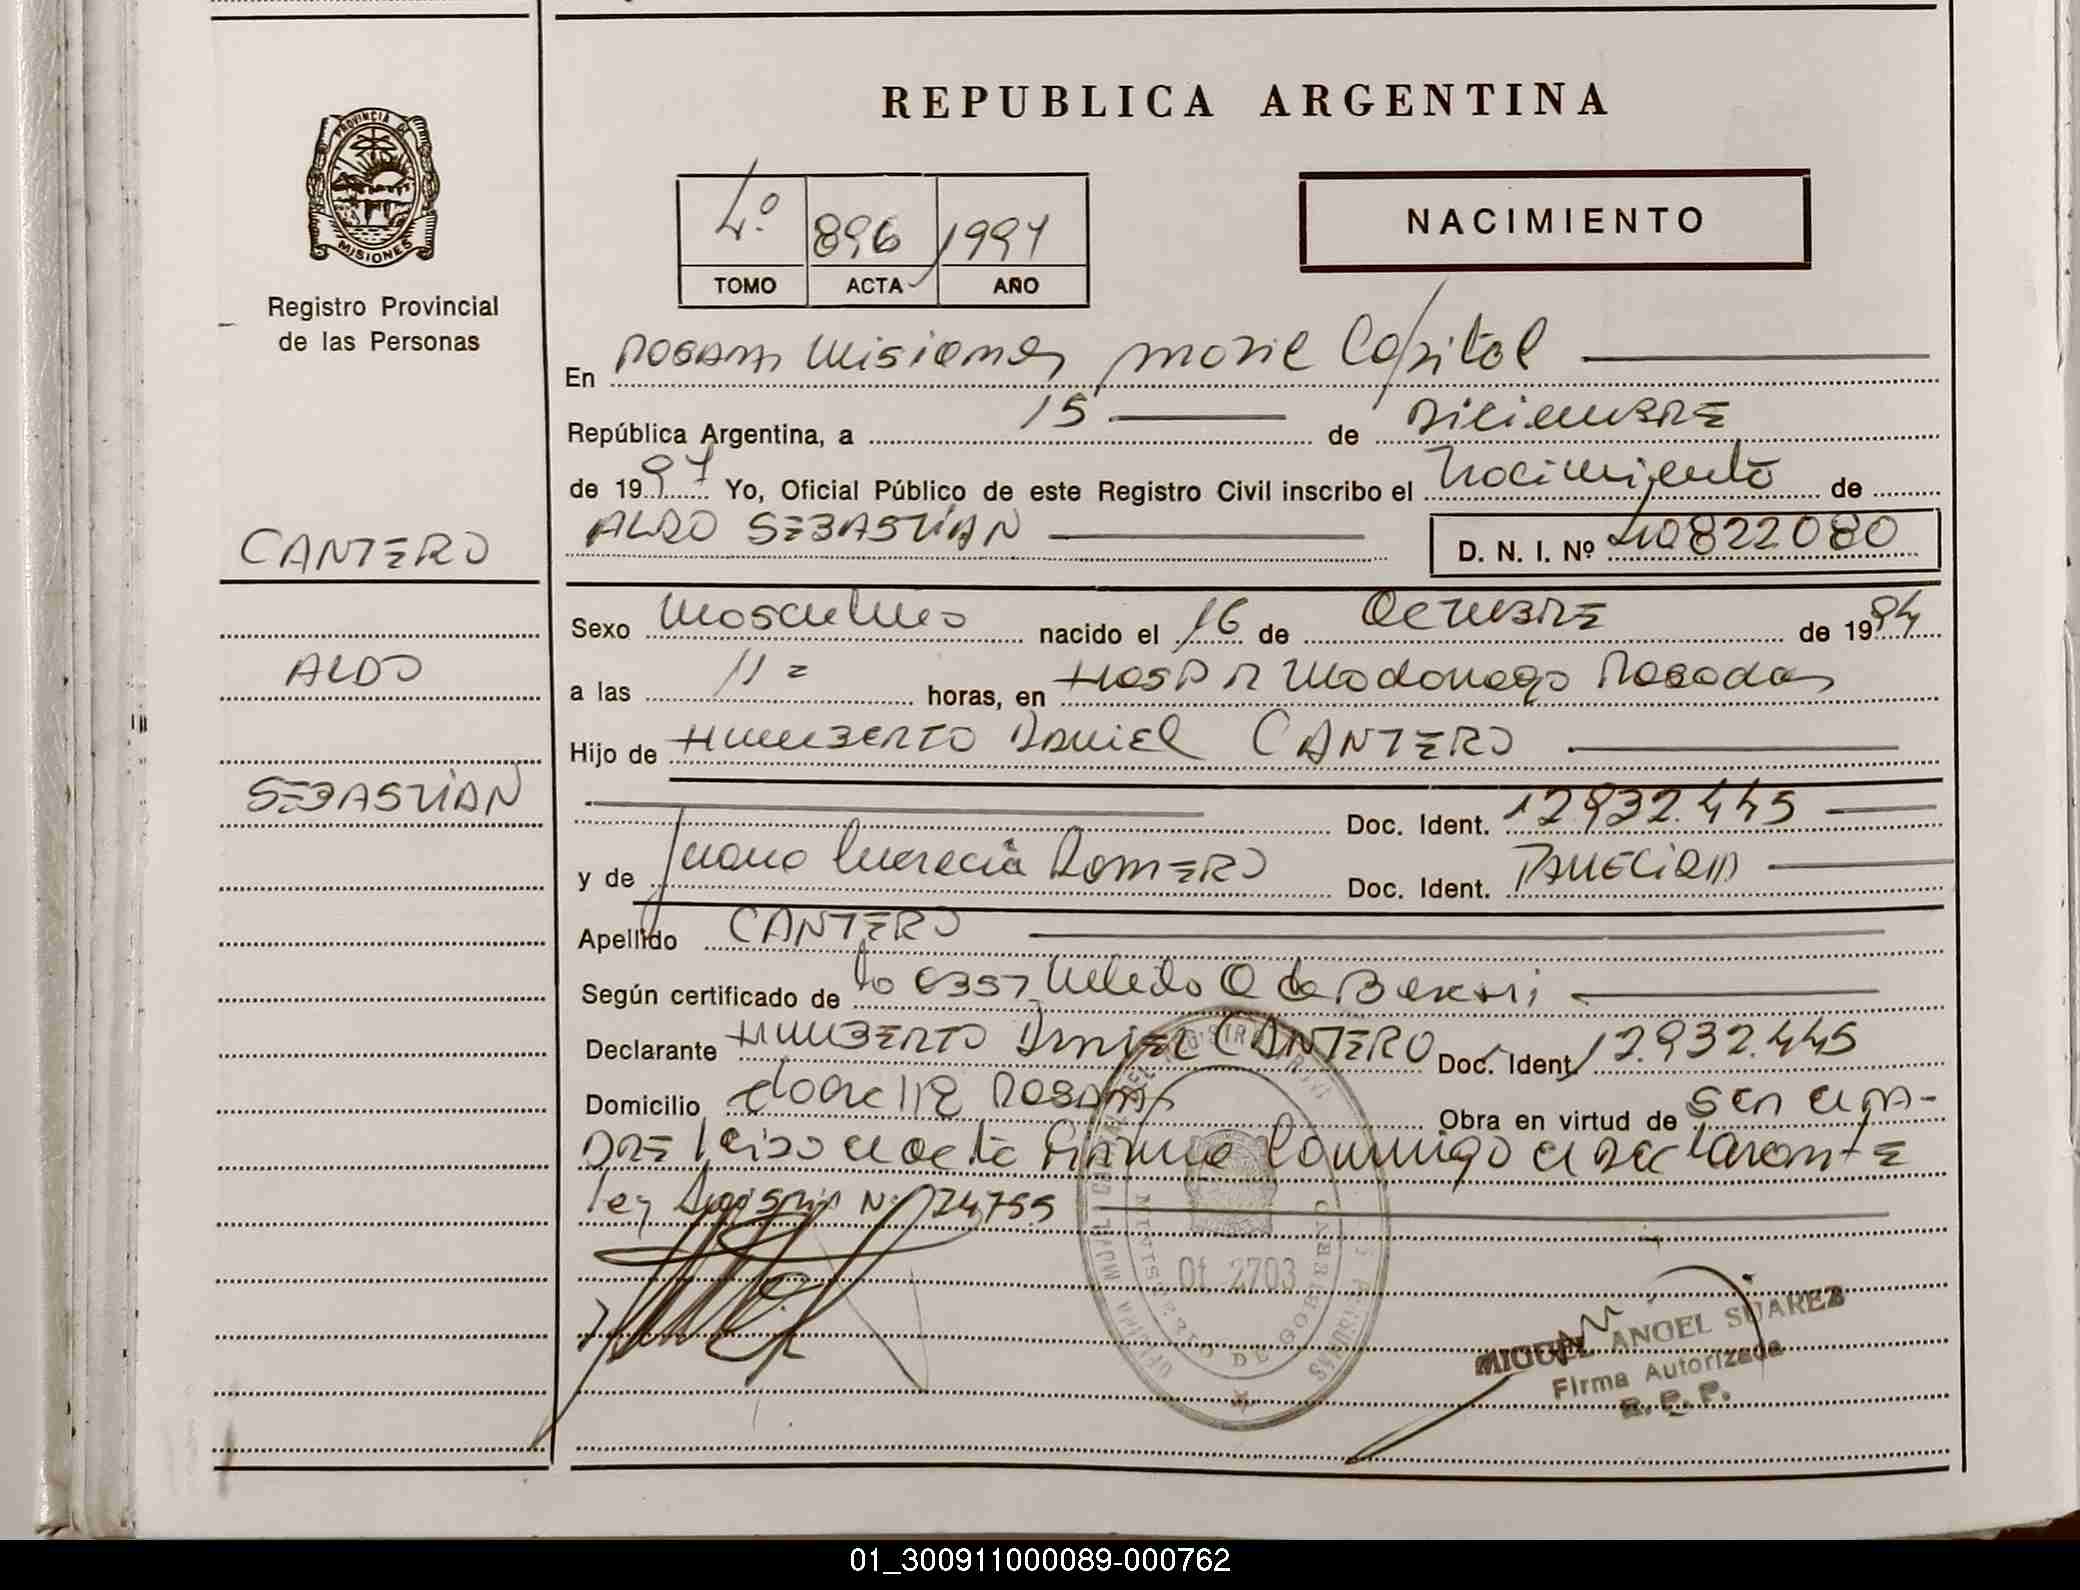 REPUBLICA ARGENTINA
PROVINCIA DE
MISIONES
Registro Provincial
de las Personas
4º 896 1997
TOMO ACTA AÑO
NACIMIENTO
En Posadas Misiones movil Capital
República Argentina, a 15 de Diciembre
de 1997 Yo, Oficial Público de este Registro Civil inscribo el Nacimiento de
ALDO SEBASTIAN D. N. I. Nº 40822080
CANTERO
ALDO
SEBASTIAN
Sexo Masculino nacido el 16 de OCTUBRE de 1994
a las 11 horas, en Hosp R Madariaga Posadas
Hijo de HUMBERTO DANIEL CANTERO
Doc. Ident. 12.932.445
y de Juana Lucrecia ROMERO Doc. Ident.
Apellido CANTERO
Según certificado de la Obst
Declarante HUMBERTO DANIEL CANTERO Doc. Ident. 12.932.445
Domicilio Posadas Obra en virtud de ser el pa-
dre leido el acta firma conmigo el declarante
ley Nº 24755
Of. 2703
MINISTERIO DE GOBIERNO
MIGUEL ANGEL SUAREZ
Firma Autorizada
R. P. P.
01_300911000089-000762